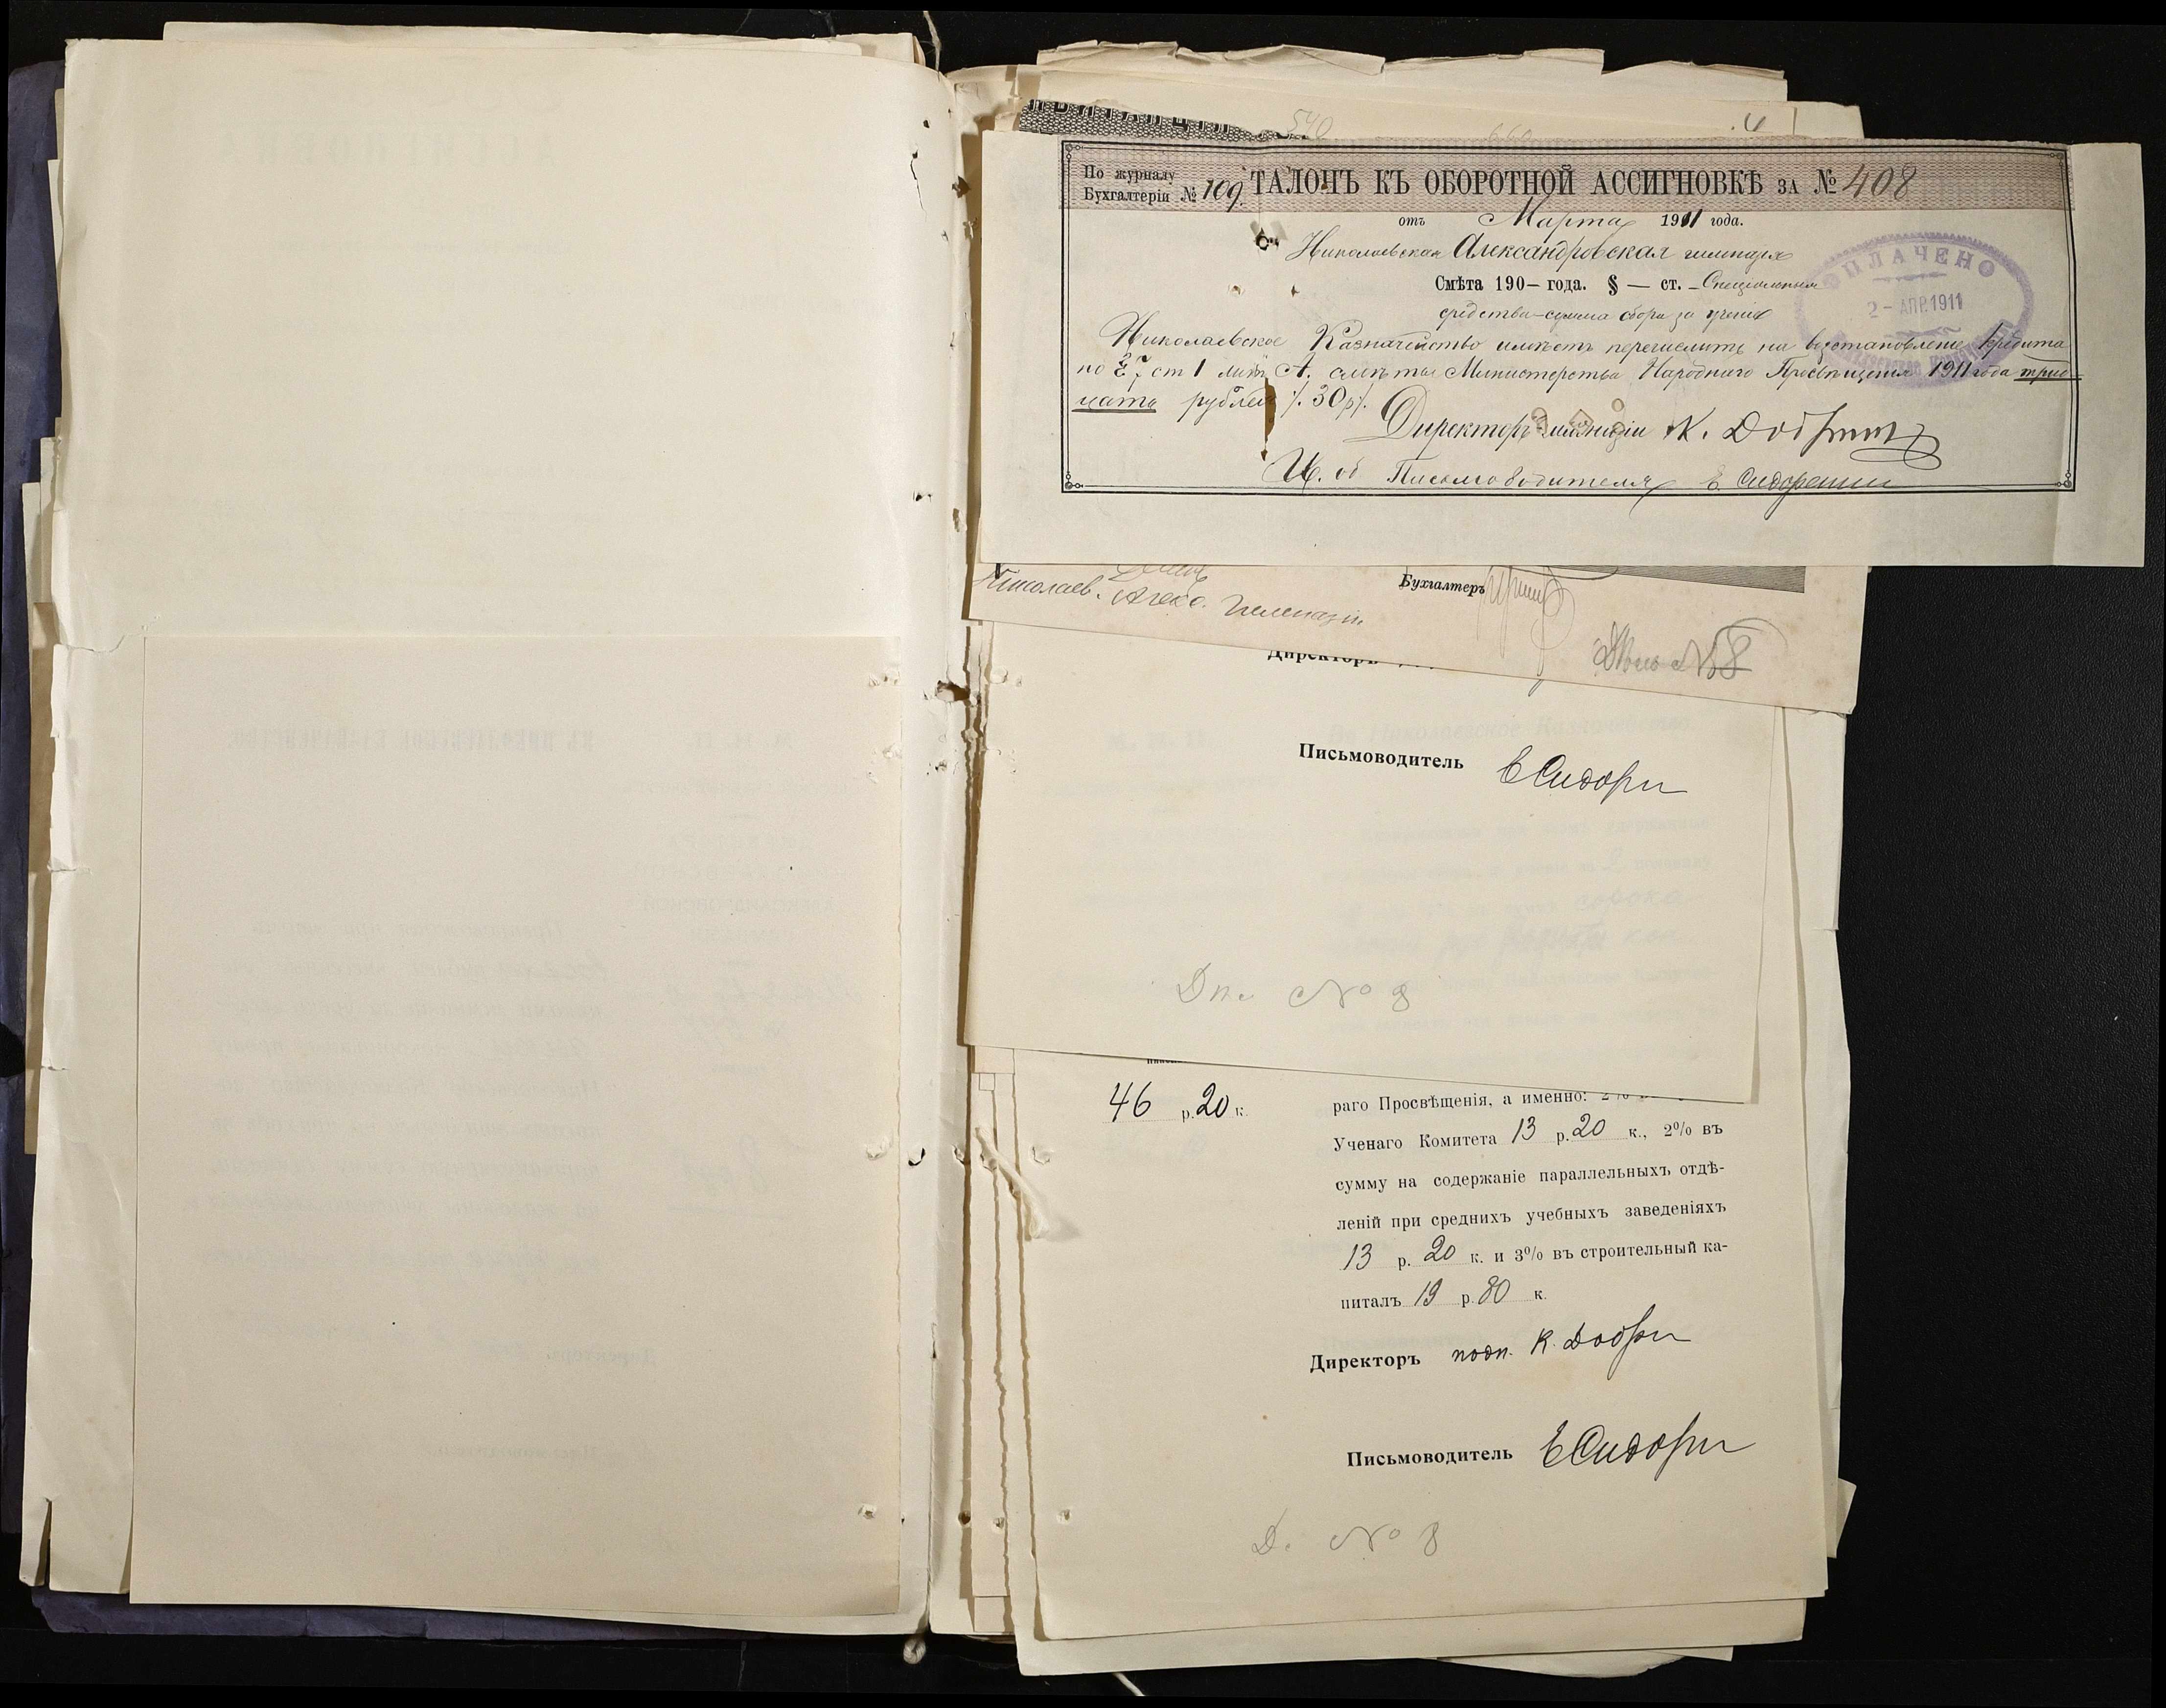 540 660
По журналу
Бухгалтеріи № 109. ТАЛОНЪ КЪ ОБОРОТНОЙ АССИГНОВКѢ ЗА № 408
отъ Марта 1911 года.
Николаевская Александровская гимназія
Смѣта 190– года. § — ст. – Спеціальныя
средства – сумма сбора за ученіе
ОПЛАЧЕНО
2 – АПР. 1911
Николаевское Казначейство имѣетъ перечислить на возстановленіе кредита
по § 7 ст 1 лит. А. смѣты Министерства Народнаго Просвѣщенія 1911 года трид-
цать рублей /. 30 р/.
Директоръ гимназіи К. Добр
И. об Письмоводителя Е. Сидоренко
Николаев. Алекс. Гимназіи
Бухгалтеръ
Дѣло № 8
Директоръ
Письмоводитель Е Сидорен
Дѣ. № 8
46 р. 20 к.
раго Просвѣщенія, а именно: 2%
Ученаго Комитета 13 р. 20 к., 2% въ
сумму на содержаніе параллельныхъ отдѣ-
леній при среднихъ учебныхъ заведеніяхъ
13 р. 20 к. и 3% въ строительный ка-
питалъ 19 р. 80 к.
Директоръ подп. К. Добр
Письмоводитель Е Сидорен
Д. № 8